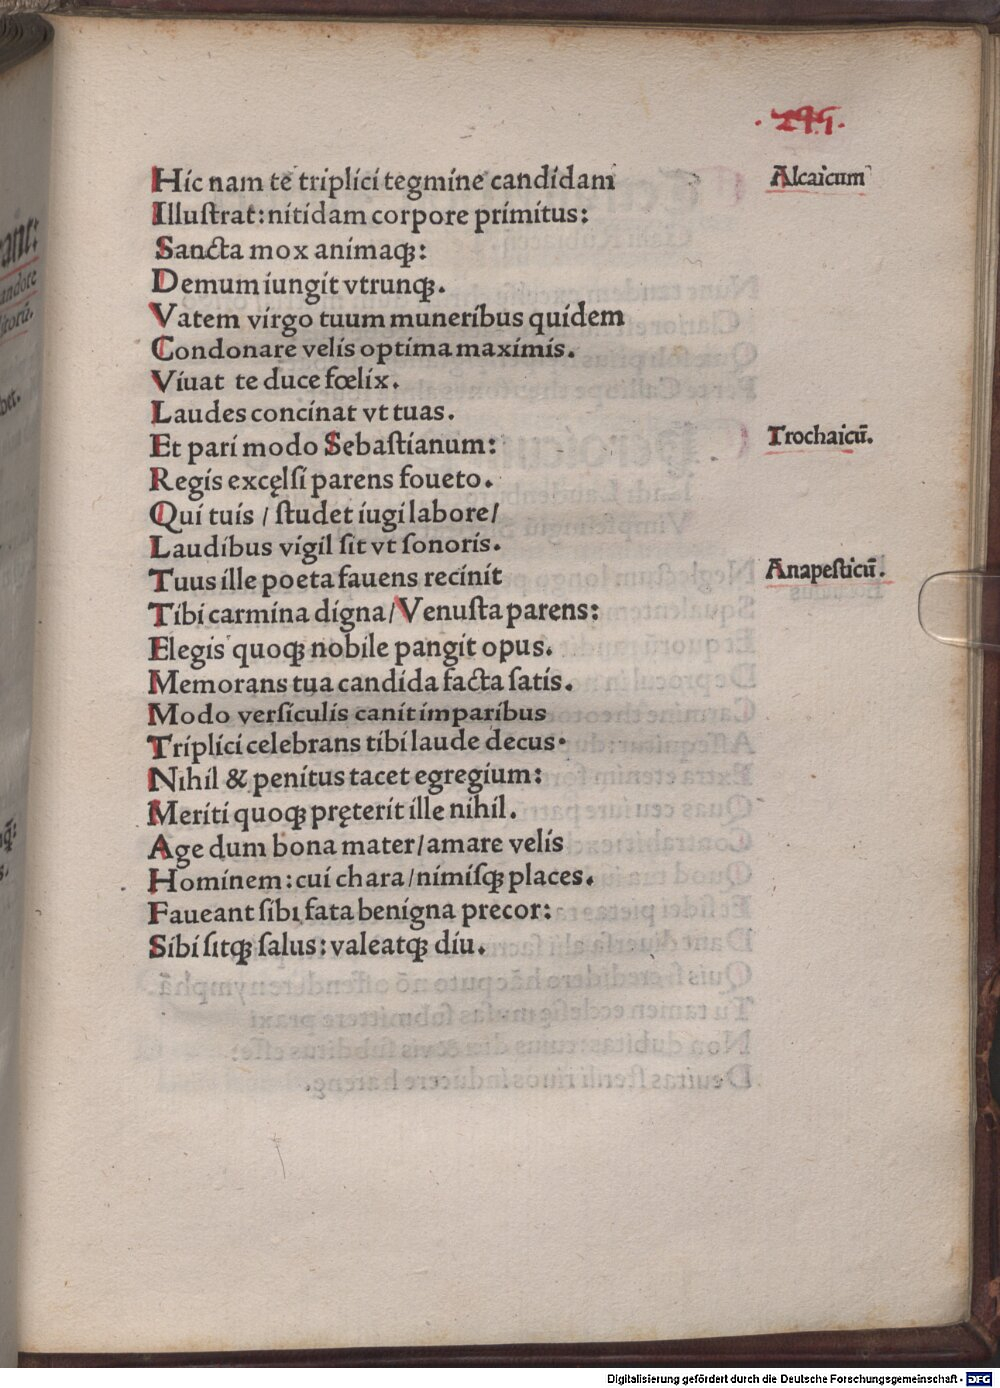 .295.
Hic nam te triplici tegmine candidam
Alcaicum
Illuſtrat: nitidam corpore primitus:
Sancta mox animaqꝫ:
Demum iungit vtrunqꝫ.
Vatem virgo tuum muneribus quidem
Condonare velis optima maximis.
Viuat te duce fœlix.
Laudes concinat vt tuas.
Et pari modo Sebaſtianum:
Trochaicū.
Regis excęlſi parens foueto.
Qui tuis / ſtudet iugi labore/
Laudibus vigil ſit vt ſonoris.
Tuus ille poeta fauens recinit
Anapeſticū.
Tibi carmina digna/Venuſta parens:
Elegis quoqꝫ nobile pangit opus.
Memorans tua candida facta ſatis.
Modo verſiculis canit imparibus
Triplici celebrans tibi laude decus·
Nihil & penitus tacet egregium:
Meriti quoqꝫ pręterit ille nihil.
Age dum bona mater/amare velis
Hominem: cui chara/nimiſqꝫ places.
Faueant ſibi fata benigna precor:
Sibi ſitqꝫ ſalus: valeatqꝫ diu.
Digitalisierung gefördert durch die Deutsche Forschungsgemeinschaft - DFG